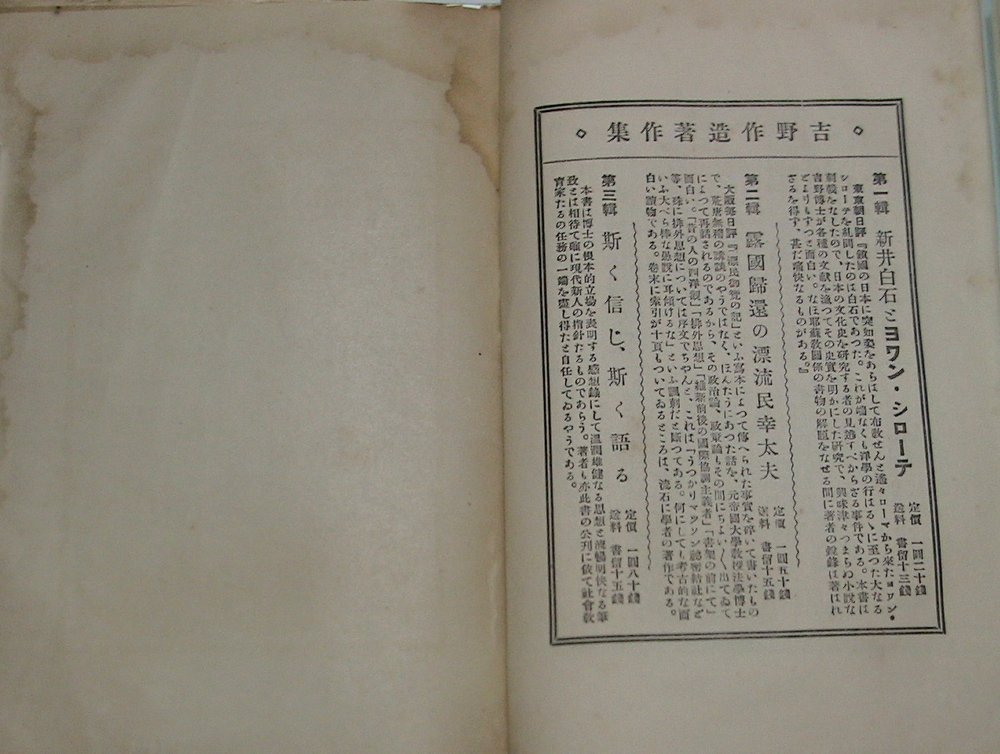 吉野作造著作集
第一輯 新井白石とヨワン・シローテ 定價 一圓二十錢 送料 書留十三錢
東京朝日評『鎖國の日本に突如姿をあらはして布敎せんと遙々ローマから來たヨワン・
シローテを糺問したのは白石であつた。これが端なくも洋學の行はるゝに至つた大なる
刺戟をなしたので、日本の文化史を硏究する者の見逃すべからざる事件である。本書は
吉野博士が各種の文献を漁つてその史實を明かにした硏究で、興味津々つまらぬ小說な
どよりもずつと面白い。なほ耶蘇敎關係の書物の解題をなせる間に著者の鋭鋒は著はれ
ざるを得ず、甚だ痛快なるものがある。』
第二輯 露國歸還の漂流民幸太夫 定價 一圓五十錢 送料 書留十五錢
大阪每日評『「漂民御覽の記」といふ寫本によつて傳へられた事實を碎いて書いたもの
で、荒唐無稽の講談のやうではなく、ほんたうにあつた話を、元帝國大學敎授法學博士
によつて再話されるのであるから、その政治論、政策論もその間にちよい〱出てゐて
面白い。「昔の人の西洋觀」「排外思想」「維新前後の國際協調主義者」「書架の前にて」
等、殊に排外思想については序文でちやんと、これは「うつかりマツソン祕密結社など
いふ大べら棒な愚說に耳傾けるな」といふ諷刺だと斷つてある。何にしても考古的な面
白い讀物である。卷末に索引が十頁もついてゐるところは、流石に學者の著作である。
第三輯 斯く信じ、斯く語る 定價 一圓八十錢 送料 書留十五錢
本書は博士の根本的立場を表明する感想錄にして溫潤雄健なる思想と流暢明快なる筆
致とは相待て確に現代新人の指針たるものであらう。著者も亦此書の公刊に依て社會敎
育家たるの任務の一端を盡し得たと自任してゐるやうである。